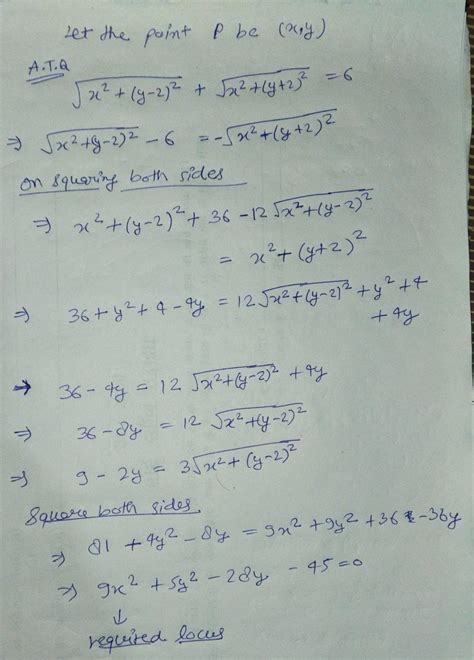 Let the point P be (x,y)
A.T.Q
√(x²+(y-2)²) + √(x²+(y+2)²) = 6
⇒ √(x²+(y-2)²) - 6 = -√(x²+(y+2)²)
on squaring both sides
⇒ x²+(y-2)²+36-12√(x²+(y-2)²)
= x²+(y+2)²
⇒ 36+y²+4-4y = 12√(x²+(y-2)²)+y²+4
+4y
⇒ 36-4y = 12√(x²+(y-2)²)+4y
⇒ 36-8y = 12√(x²+(y-2)²)
⇒ 9-2y = 3√(x²+(y-2)²)
Square both sides
⇒ 81+4y²-8y = 9x²+9y²+36-36y
⇒ 9x²+5y²-28y-45=0
↓
required locus